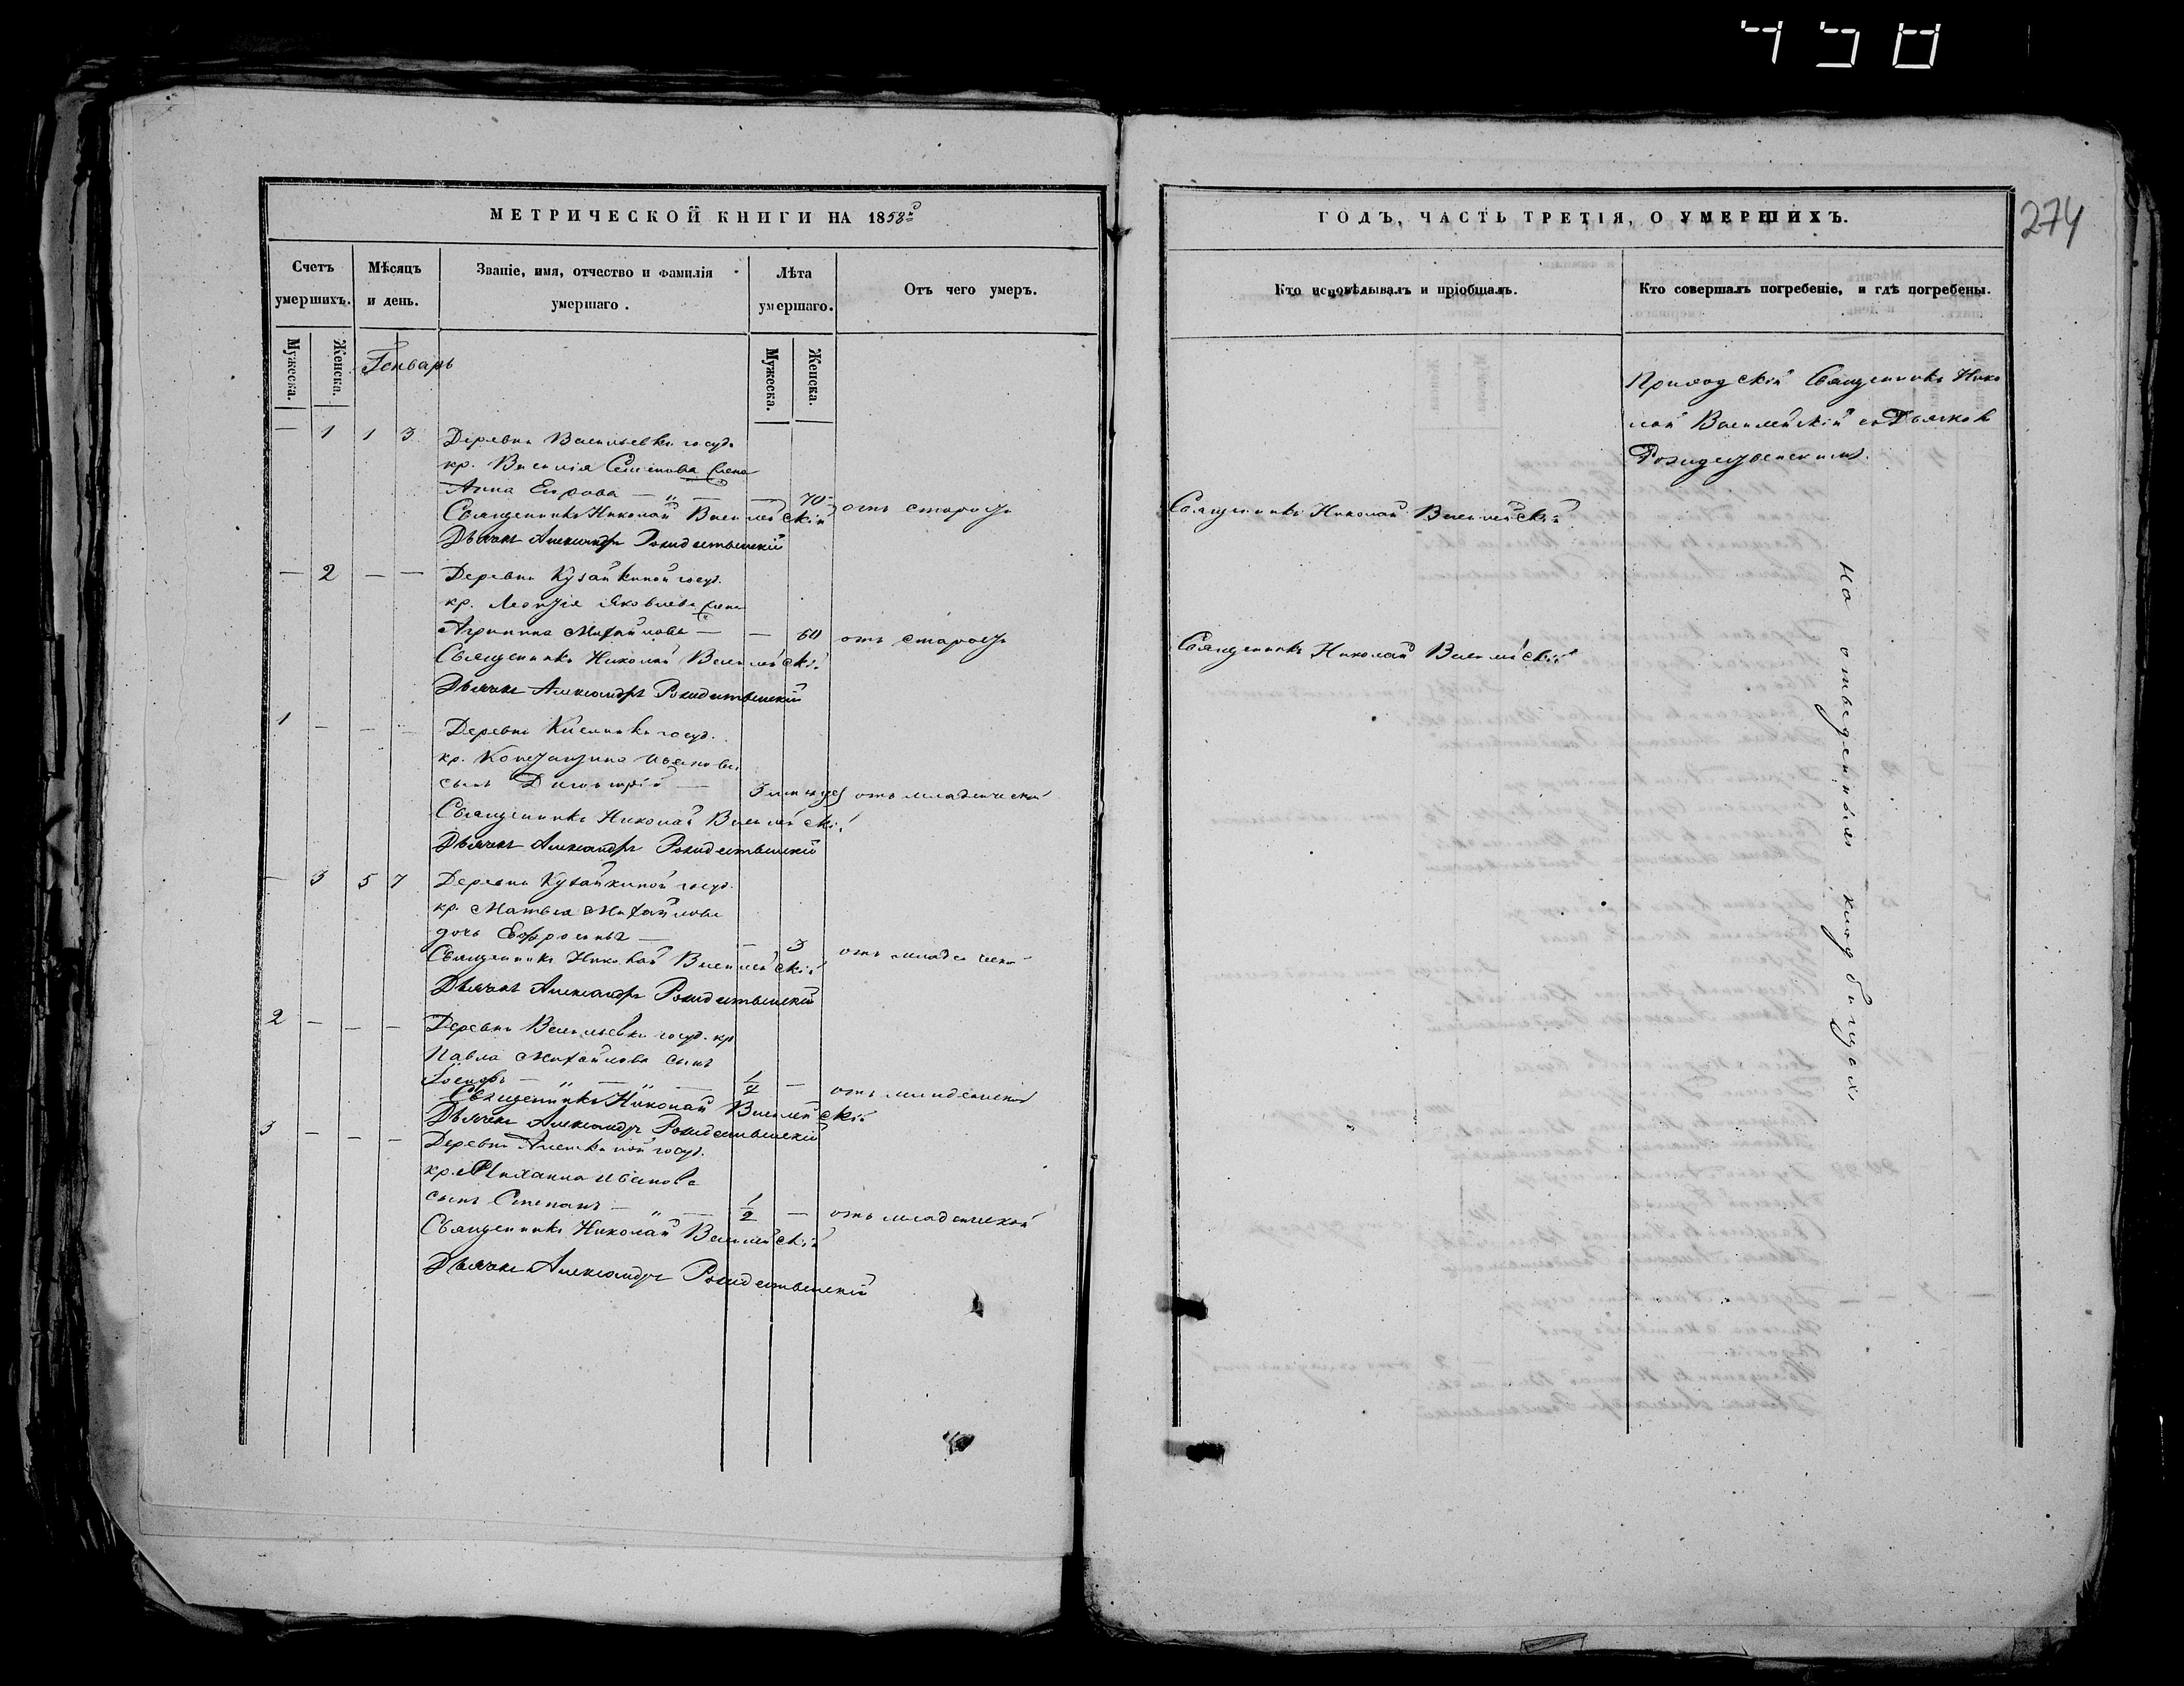 450
МЕТРИЧЕСКОЙ КНИГИ НА 1858й
Счетъ умершихъ.
Мѣсяцъ и день.
Званіе, имя, отчество и фамилія умершаго.
Лѣта умершаго.
Отъ чего умеръ.
Мужеска.
Женска.
Генварь
Мужеска.
Женска.
— 1 1 3 Деревни Васильевки госуд.
кр. Василія Семенова жена
Анна Егрова — „ — — 70 отъ старости
Священникъ Николай
Дьячекъ Александръ Рождественскій
— 2 — — Деревни Кузайкиной госуд.
кр. Леонтія Яковлева жена
Агрипина Михайлова — — 60 отъ старости
Священникъ Николай
Дьячекъ Александръ Рождественскій
1 — — — Деревни госуд.
кр. Константина Иванова
сынъ Димитрій — 3 отъ младенческой
Священникъ Николай
Дьячекъ Александръ Рождественскій
— 3 5 7 Деревни Кузайкиной госуд.
кр. Матвея Михайлова
дочь Ефросинья — — 3 отъ младенческой
Священникъ Николай
Дьячекъ Александръ Рождественскій
2 — — — Деревни Васильевки госуд. кр
Павла Михайлова сынъ
Іосифъ — „ — „ — —
отъ младенческой
Священникъ Николай
Дьячекъ Александръ Рождественскій
3 — — — Деревни Алешкиной госуд.
кр. Михаила Иванова
сынъ Степанъ — „ — 1/2 — отъ младенческой
Священникъ Николай
Дьячекъ Александръ Рождественскій
ГОДЪ, ЧАСТЬ ТРЕТІЯ, О УМЕРШИХЪ.
274
Кто исповѣдывалъ и пріобщалъ.
Кто совершалъ погребеніе, и гдѣ погребены.
Приходскій Священникъ Нико
лай съ Дьячкомъ
Рождественскимъ.
Священникъ Николай
Священникъ Николай
на отведенныхъ кладбищахъ